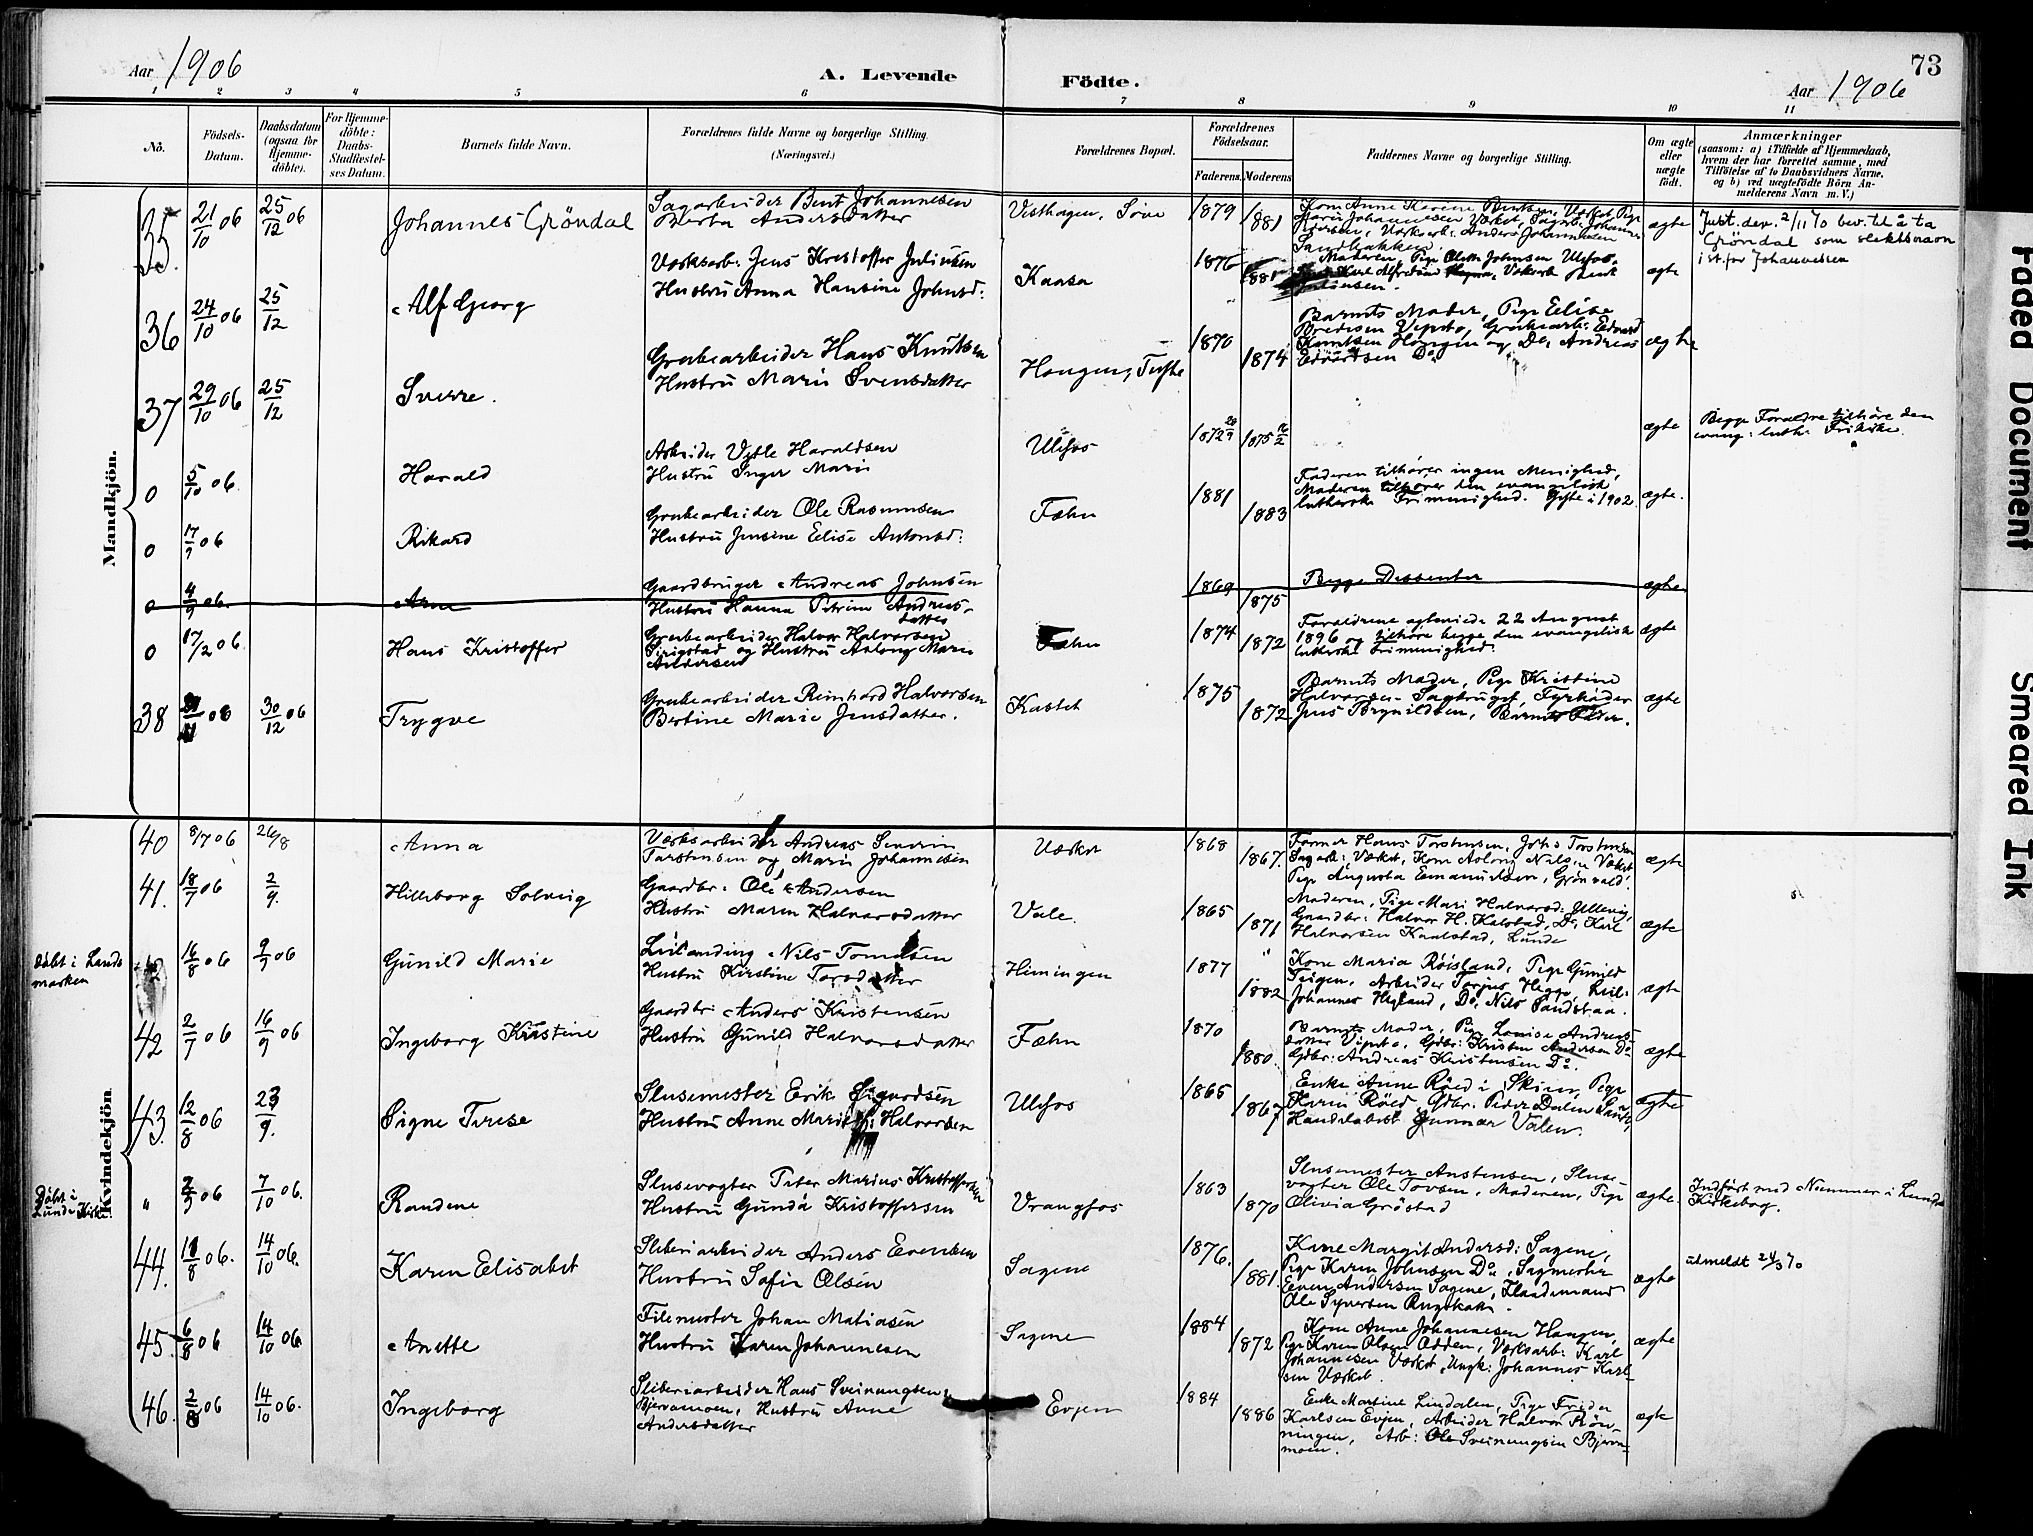 Aar 1906
A. Levende
Födte.
Aar 1906
73
1 2 3 4 5 6 7 8 9 10 11
No.
Födsels-
Datum.
Daabsdatum
(ogsaa for
Hjemme-
döbte).
For Hjemme-
döbte:
Daabs-
Stadfæstel-
ses Datum.
Barnets fulde Navn.
Forældrenes fulde Navne og borgerlige Stilling.
(Næringsvei.)
Forældrenes Bopæl.
Forældrenes
Födselsaar.
Faderens.
Moderens
Faddernes Navne og borgerlige Stilling.
Om ægte
eller
uægte
födt.
Anmærkninger
(saasom: a) i Tilfælde af Hjemmedaab,
hvem der har forrettet samme, med
Tilföielse af to Daabsvidners Navne.
og b) ved uægtefödte Börn An-
melderens Navn m. V.)
Mandkjön.
35. 21/10 06 25/12 06 Johannes Gröndal
Sagarbeider Bent Johannesen
Berta Andersdatter
Visthagen, Söve 1879 1881
Sandbakken.
ægte
Just. dep. 2/11 70 bev. til å ta
Gröndal som slektsnavn
i st. for Johannessen
36 24/10 06 25/12 Alf Georg
Værksarb: Jens Kristoffer Juliusen
Hustru Anna Hansine Johnsd:
Kaasa 1876 1881
Moderen, Pige Johnsen Ulefos,
ægte
37 29/10 06 25/12 Sverre.
Grubearbeider Hans Knutsen
Hustru Marie Svensdatter
Haugen, Tufte 1870 1874
Barnets Moder, Pige Elise
Bredesen Vipeto, Grubearb: Edvard
Knutsen Haugen og Do. Andreas
Edvardsen Do.
ægte
0 5/10 06. Harald
Arbeider Vetle Haraldsen
Hustru Inger Marie
Ulefos 1872 1875
ægte
Begge Forældre tilhöre den
evang: luth: Frikirke.
0 17/9 06 Rikard
Grubearbeider Ole Rasmussen
Hustru Jensine Elise Antonsd:
Fæhn 1881 1883
Faderen tilhörer ingen Menighed,
Moderen tilhörer den evangelisk
lutherske Frimenighed. Gifte i 1902.
ægte.
0 4/9 06. Arne
Gaardbruger Andreas Johnsen
Hustru Hanna Petrine Andreas-
datter
1869 1875
Begge Dissenter
ægte
0 17/2 06. Hans Kristoffer
Grubearbeider Halvor Halvorsen
og Hustru Aslaug Marie
Andersen
Fæhn 1874 1872
Forældrene egteviede 22 August
1896 og tilhöre begge den evangelisk
lutherske Frimenighed.
ægte
38 06 30/12 06 Trygve
Grubearbeider Reinhard Halvorsen
Bertine Marie Jensdatter.
Kastet 1875 1872
Barnets Moder, Pige Kristine
Halvorsen Sagbruget, Fyrböder
Jens Brynildsen, Barnets Fader.
ægte
Kvindekjön
40 8/7 06 26/8 Anna
Værksarbeider Andreas Severin
Torstensen og Marie Johannesen
Værket 1868 1867.
Farmer Hans Torstensen, Johs Torstensen
Sagarb: Værket, Kone Aslaug Nilsen Værket
Pige Augusta Emanuelsen, Grönvald.
ægte
41. 18/7 06 2/9. Hilleborg Solveig
Gaardbr: Ole Andersen
Hustru Maren Halvorsdatter
Vale. 1865 1871
Moderen, Pige Mari Halvorsd: Ullevig,
Gaardbr: Halvor H. Kalstad, Do. Karl
Halvorsen Kaalstad, Lunde
ægte
Döbt i Lands
marken
16/8 06 9/9 06 Gunild Marie
Leilænding Nils Tomesen
Hustru Kirstine Torsdatter
Heimingen 1877 1882
Kone Maria Röisland, Pige Gunild
Teigen, Arbeider Torjus Hegge, Leil:
Johannes Hegland, Do. Nils Sandsaa.
ægte
42 2/7 06 16/9 06 Ingeborg Kristine
Gaardbr: Anders Kristensen
Hustru Gunild Halvorsdatter
Fæhn 1870 1880.
Barnets Moder, Pige Louise Andreas-
datter Vipeto, Gdbr: Kristen Andersen Do
Gdbr: Andreas Kristensen Do.
ægte
43. 12/8 06 23/9. Signe Terese
Slusemester Erik Sigurdsen
Hustru Anne Marie Halvorsen
Ulefos 1865 1867
Enke Anne Röed i Skien, Pige
Karen Röed, Gdbr: Peder Dalen Lunde,
Handelsbest Gunnar Valen.
ægte
Döbt i
Lunde Kirke
" 2/9 06 7/10 06. Randene
Slusevogter Peter Marius Kristoffersen
Hustru Gunda Kristoffersen
Vrangfos 1863 1870
Slusemester Anstensen, Sluse-
vogter Ole Tovsen, Moderen, Pige
Olivia Gröstad
ægte
Indfört med Nummer i Lunde
Kirkebog.
44. 11/8 06. 14/10 06. Karen Elisabet
Sliberiarbeider Anders Evensen
Hustru Sofie Olsen
Sagene 1876. 1881.
Kone Margit Andersd: Sagene,
Pige Karen Johnsen Do., Sagmester
Even Andersen Sagene,
Ole Syversen
ægte
utmeldt 24/3 70
45. 6/8 06 14/10 06. Anette
Filemester Johan Matiasen
Hustru Karen Johannesen
Sagene 1884 1872
Kone Anne Johannesen Haugen,
Pige Karen Olsen Odden, Værksarb: Karl
Johannesen Værket, Ungk: Johannes Karl-
sen Værket.
ægte
46. 2/8 06 14/10 06. Ingeborg
Sliberiarbeider Hans Sveinungsen
Bjervamoen, Hustru Anne
Andersdatter
Evjen 1884 1886
Enke Martine Lindalen, Pige Frida
Karlsen Evjen, Arbeider Halvor Rön-
ningen, Arb: Ole Sveinungsen Bjerva-
moen.
ægte
Faded Document
Smeared Ink